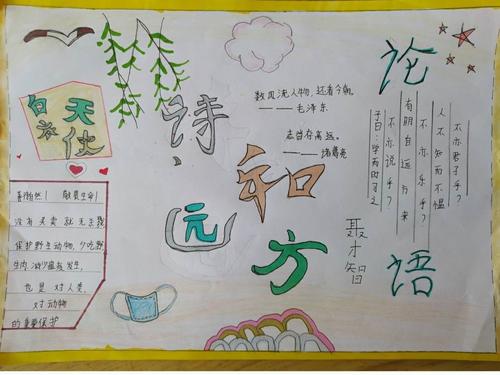 白衣
天使
善待自然!敬畏生命!
没有买卖就无杀戮
保护野生动物,少吃野
生肉,减少瘟疫发生,
也是对人类,
对动物
的重要保护
诗
和
远
方
数风流人物,还看今朝。
———毛泽东
志当存高远。
———诸葛亮
论
语
子曰:学而时习之
不亦说乎?
有朋自远方来
不亦乐乎?
人不知而不愠
不亦君子乎?
聂才智